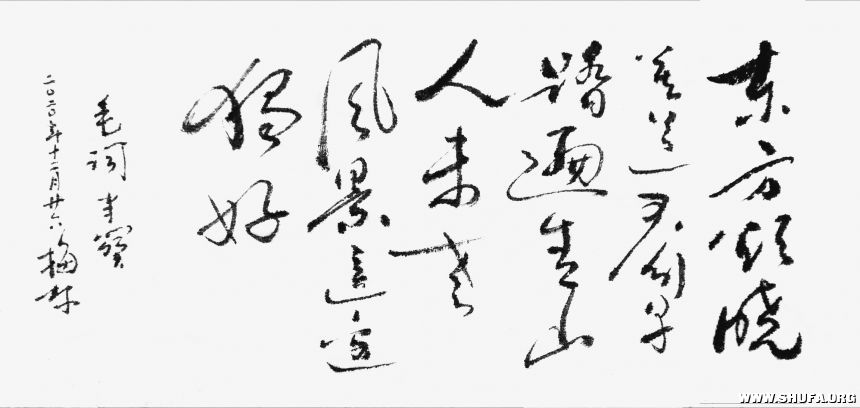 東方欲曉
莫道君行早
踏遍青山
人未老
风景這边
獨好
毛词半阕
二〇二〇年十二月廿六 梅林
WWW.SHUFA.ORG